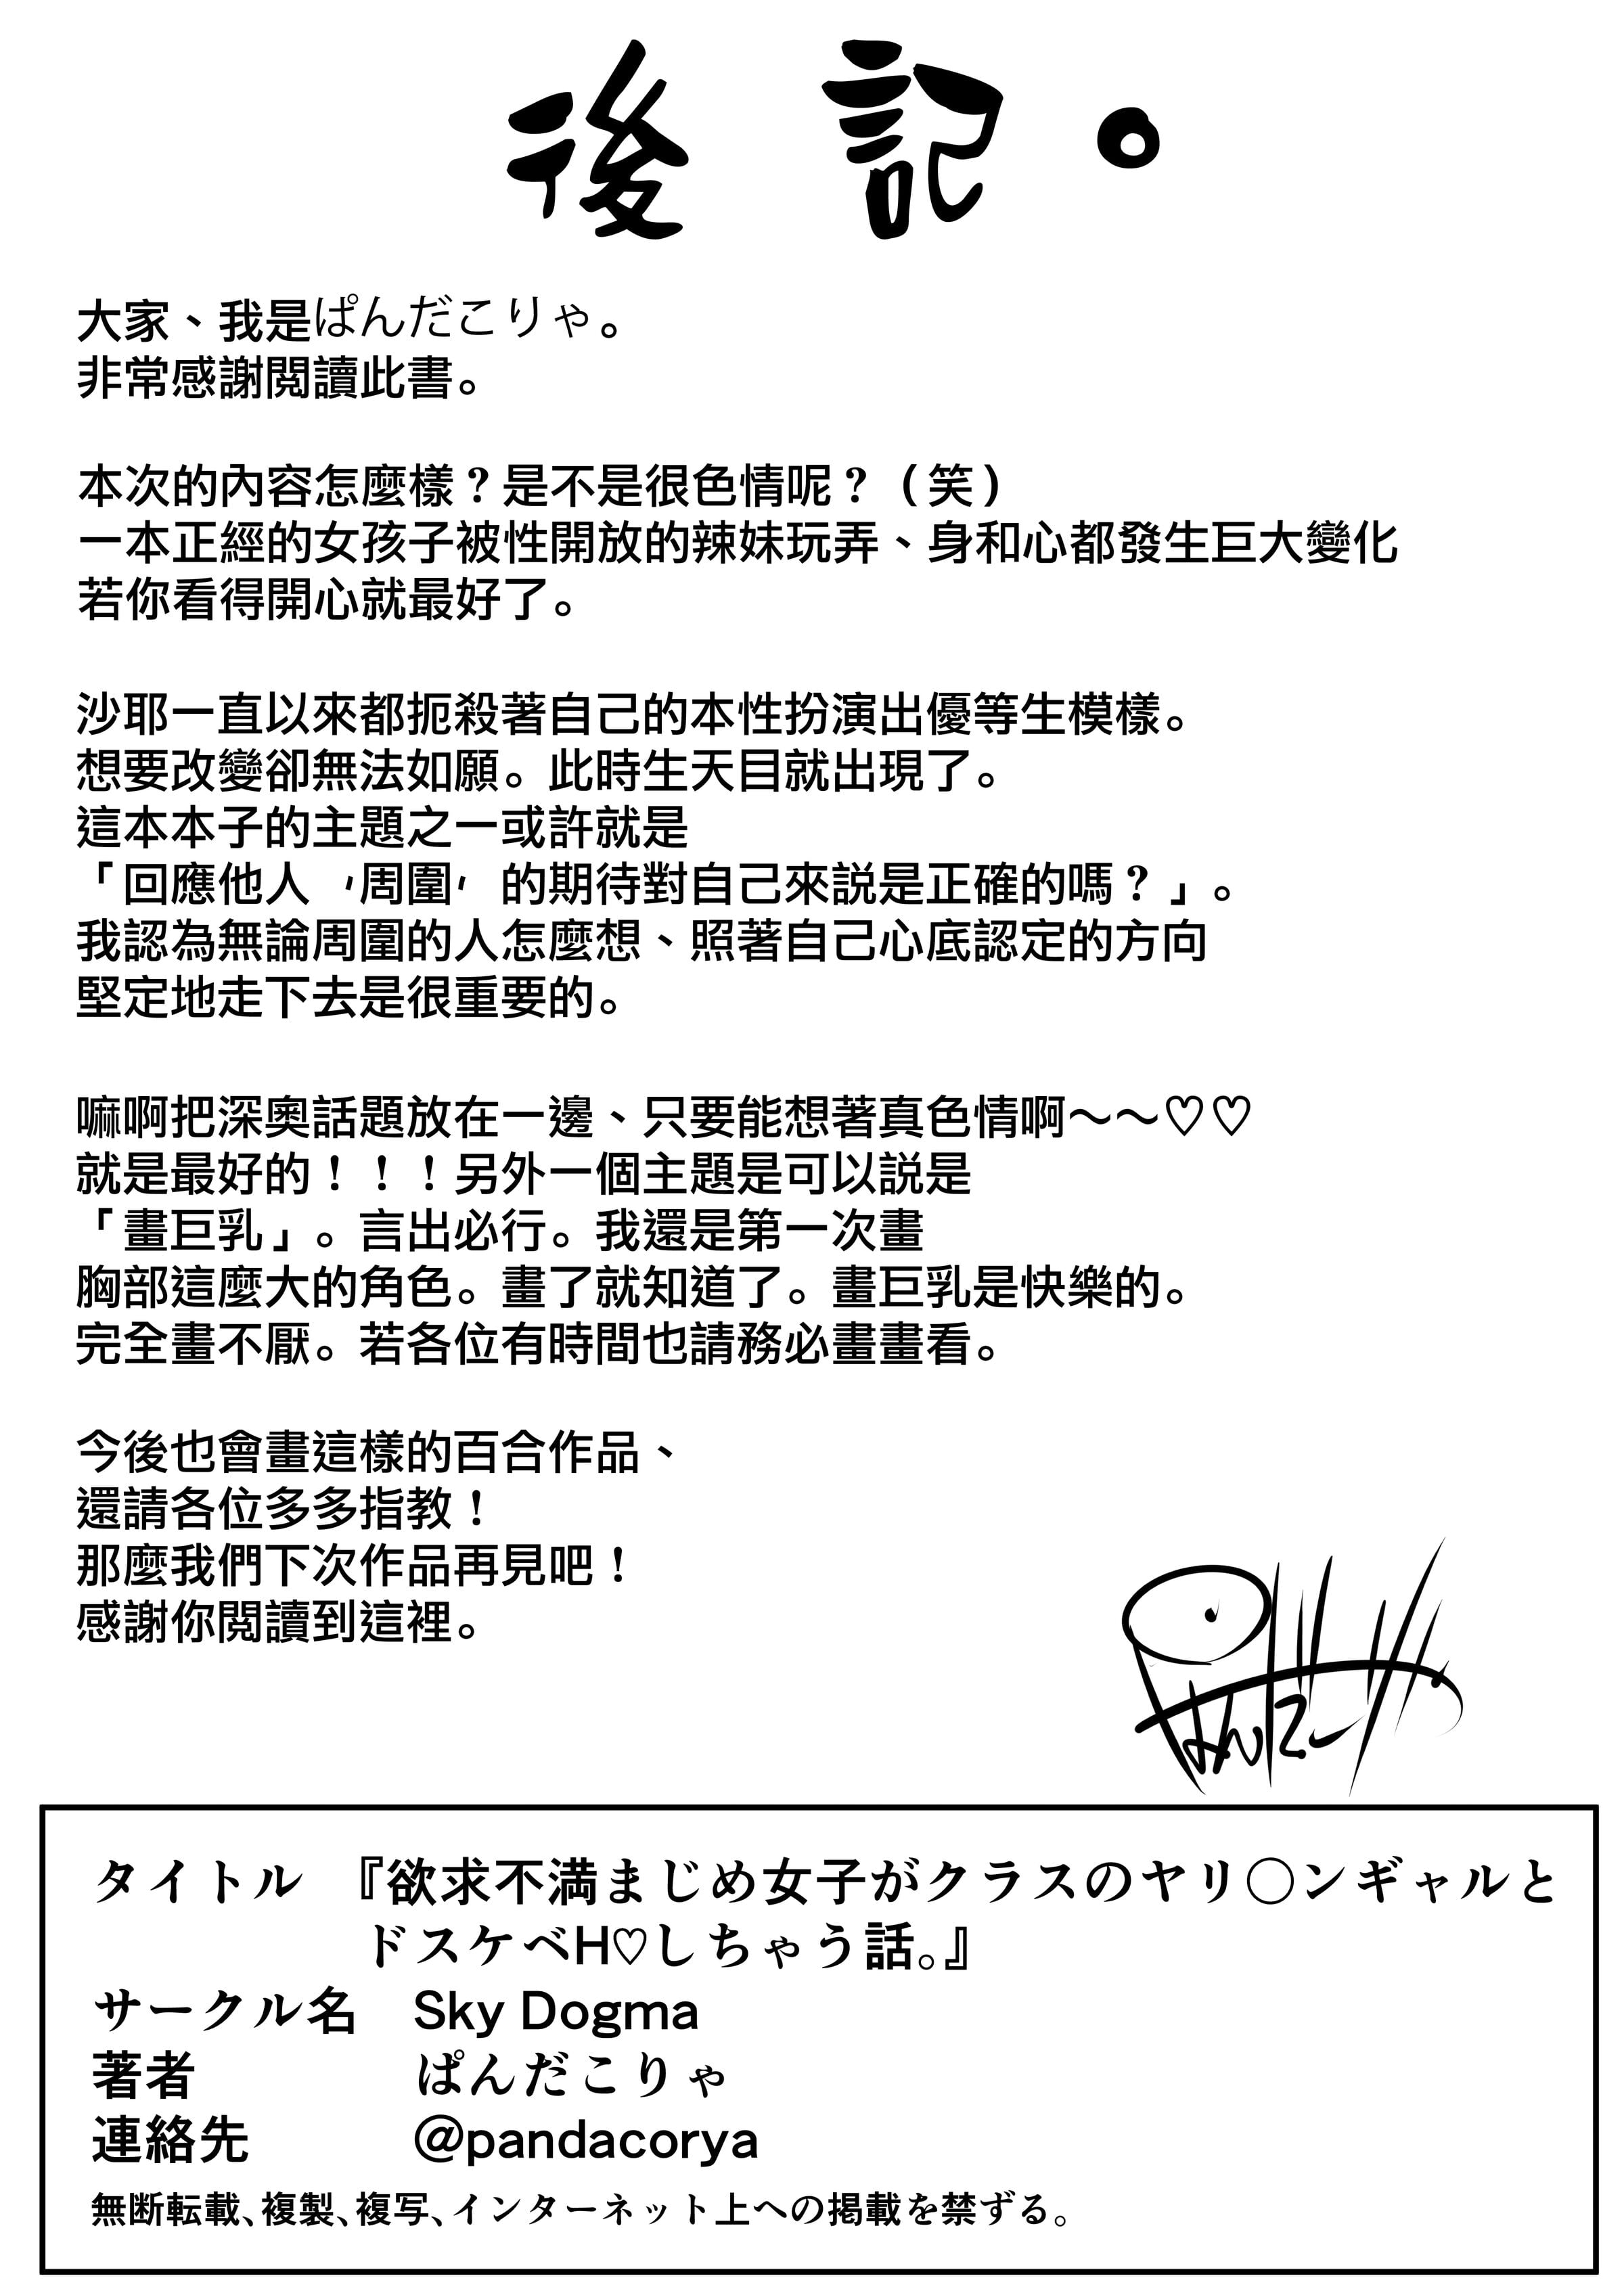 後記。
大家、我是ぱんだこりゃ。
非常感謝閲讀此書。
本次的內容怎麼樣？是不是很色情呢？（笑）
一本正經的女孩子被性開放的辣妹玩弄、身和心都發生巨大變化
若你看得開心就最好了。
沙耶一直以來都扼殺著自己的本性扮演出優等生模樣。
想要改變卻無法如願。此時生天目就出現了。
這本本子的主題之一或許就是
「回應他人 ′周圍′ 的期待對自己來説是正確的嗎？」。
我認為無論周圍的人怎麼想、照著自己心底認定的方向
堅定地走下去是很重要的。
嘛啊把深奧話題放在一邊、只要能想著真色情啊～～♡♡
就是最好的！！！另外一個主題是可以説是
「畫巨乳」。言出必行。我還是第一次畫
胸部這麼大的角色。畫了就知道了。畫巨乳是快樂的。
完全畫不厭。若各位有時間也請務必畫畫看。
今後也會畫這樣的百合作品、
還請各位多多指教！
那麼我們下次作品再見吧！
感謝你閲讀到這裡。
タイトル 『欲求不満まじめ女子がクラスのヤリ〇ンギャルと
ドスケベH♡しちゃう話。』
サークル名 Sky Dogma
著者 ぱんだこりゃ
連絡先 @pandacorya
無断転載、複製、複写、インターネット上への掲載を禁ずる。